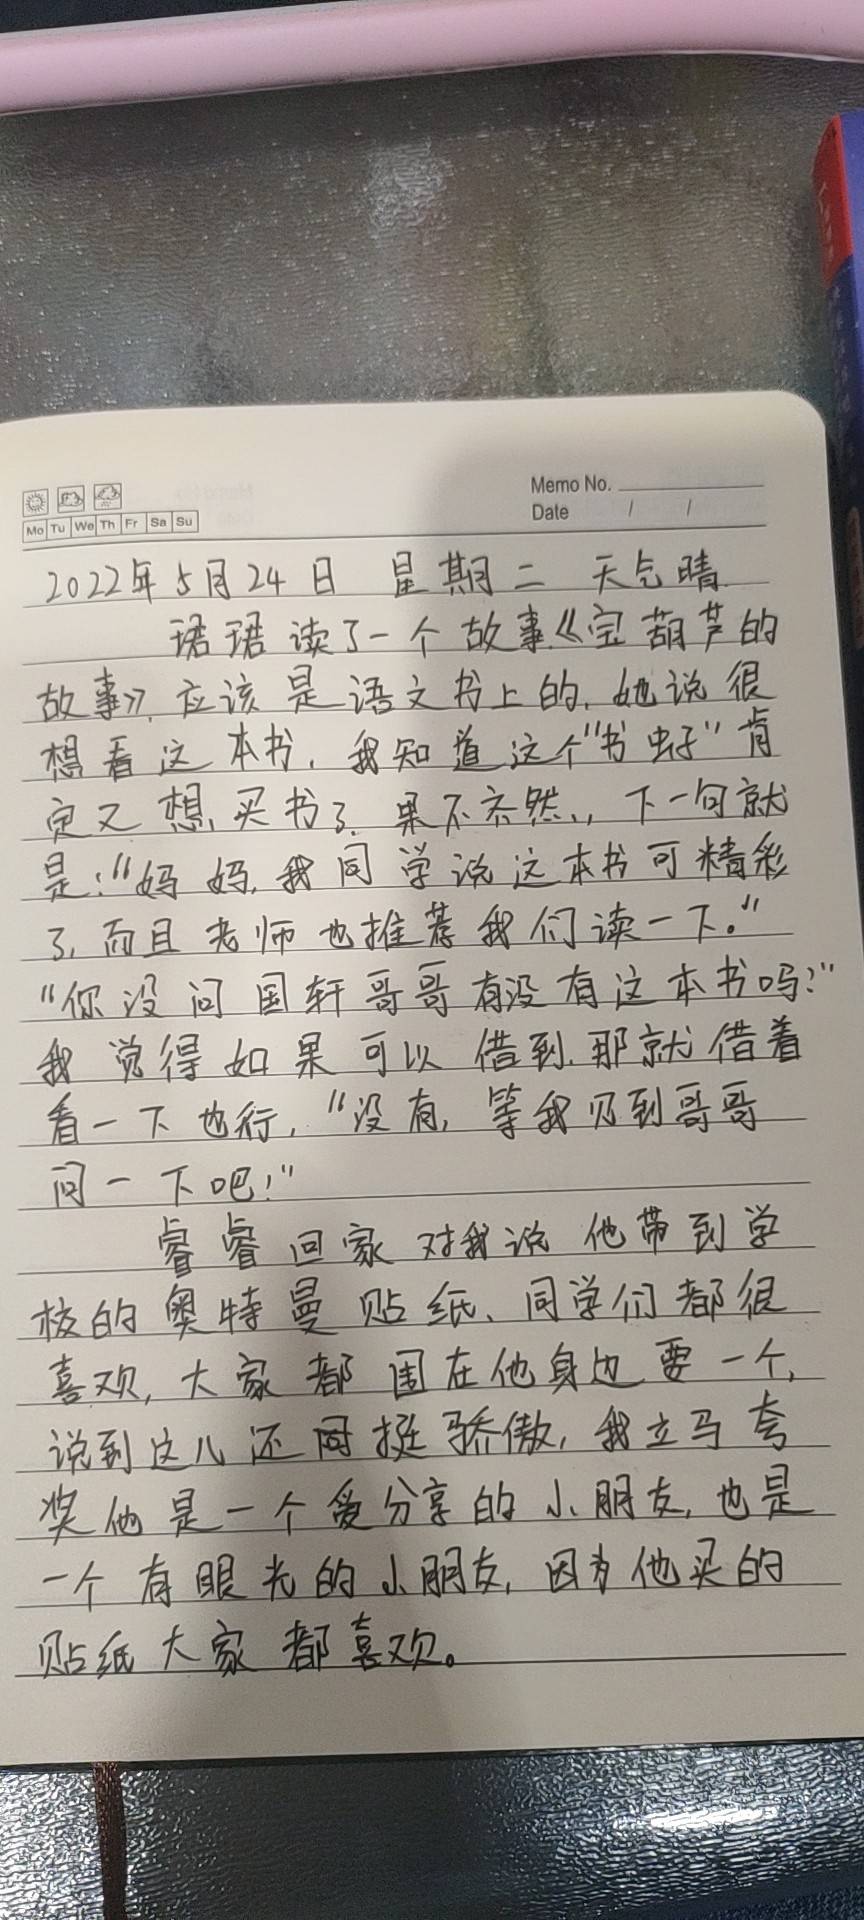 Memo No.
Date / /
Mo Tu We Th Fr Sa Su
2022年5月24日 星期二 天气晴
珺珺读了一个故事《宝葫芦的
故事》,应该是语文书上的,她说很
想看这本书,我知道这个"书虫子"肯
定又想买书了,果不齐然,,下一句就
是:"妈妈,我同学说这本书可精彩
了,而且老师也推荐我们读一下。"
"你没问国轩哥哥有没有这本书吗?"
我觉得如果可以借到,那就借着
看一下也行,"没有,等我见到哥哥
问一下吧!"
睿睿回家对我说他带到学
校的奥特曼贴纸、同学们都很
喜欢,大家都围在他身边要一个,
说到这儿还挺骄傲,我立马夸
奖他是一个爱分享的小朋友,也是
一个有眼光的小朋友,因为他买的
贴纸大家都喜欢。